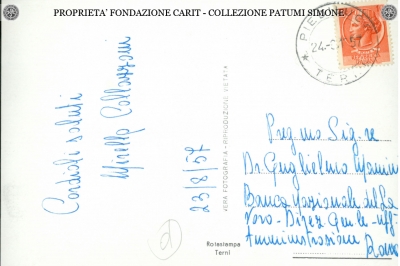 PROPRIETA' FONDAZIONE CARIT - COLLEZIONE PATUMI SIMONE
Cordiali saluti
Mirella
23/8/57
VERA FOTOGRAFIA - RIPRODUZIONE VIETATA
Rotastampa
Terni
24-
TER
Preg.mo Sig.re
Dr. Guglielmo
Banca Nazionale del La
voro - Direz Gen.le - uff.
Amministrazione
Roma